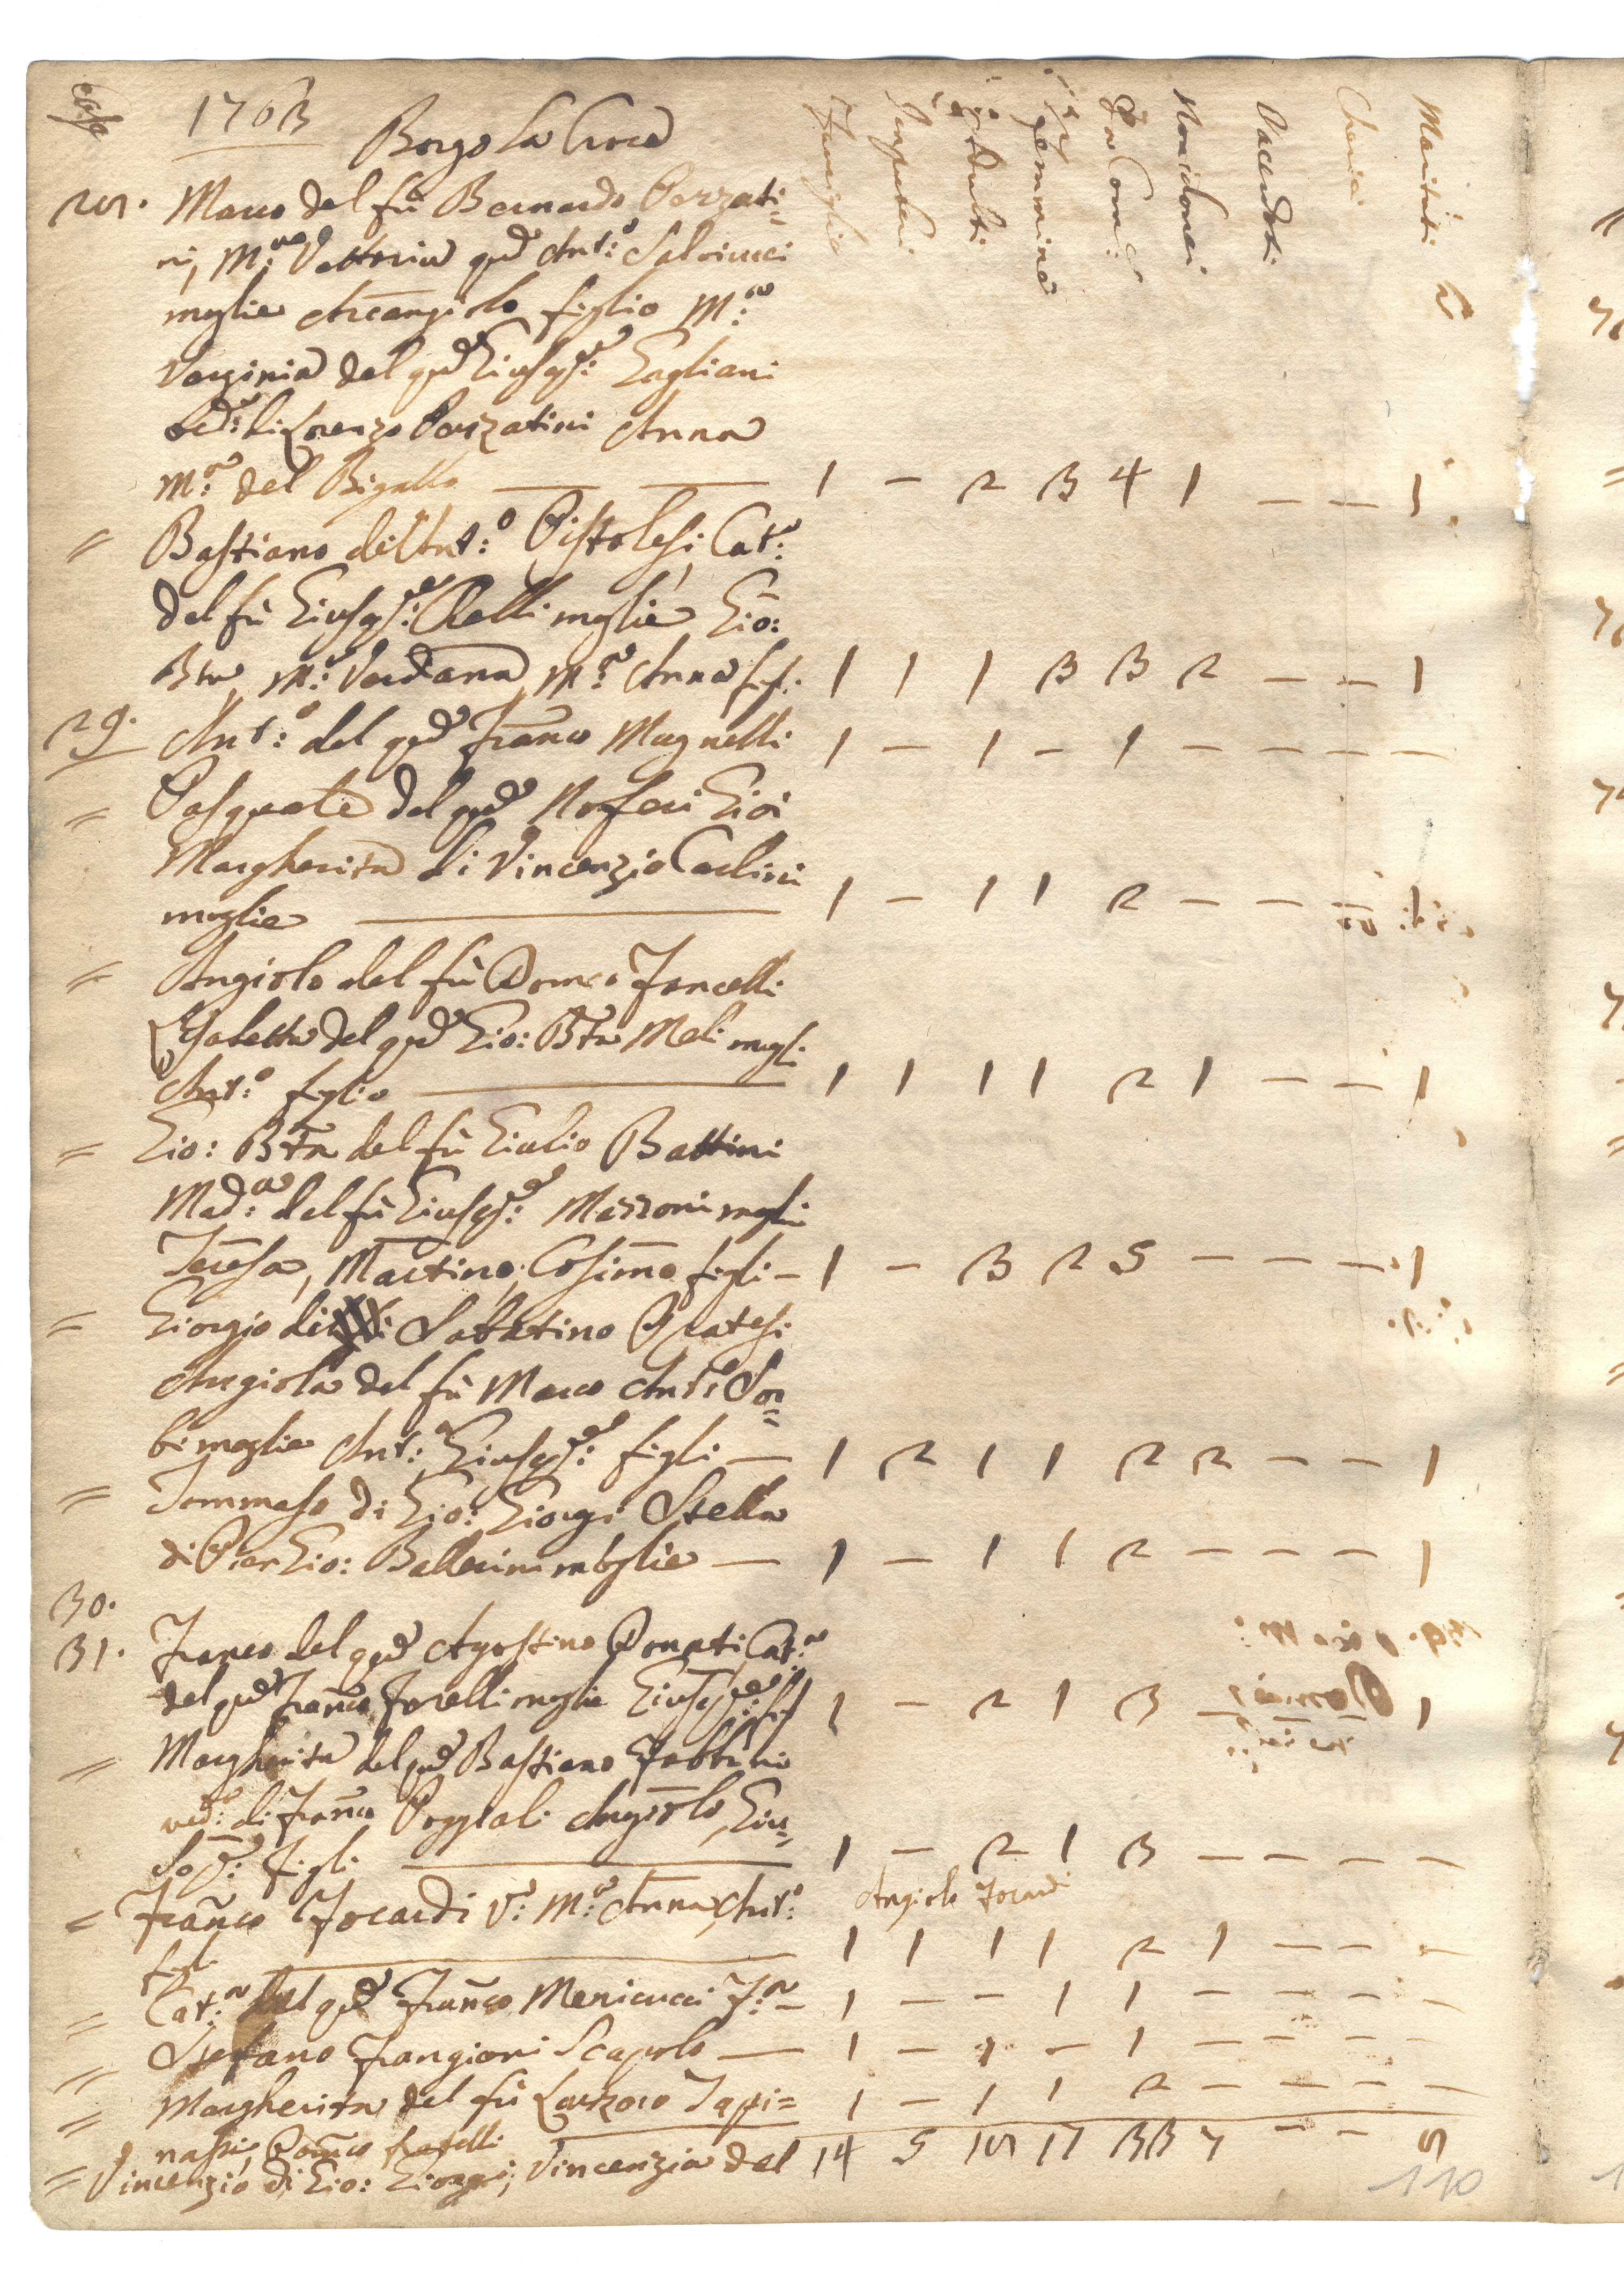 Case
1763 Borgo La Croce
Famiglie Impuberi Adulti Femmine Da Com: Non idonei Sacerdoti Cherici Mariti
28. Marco del fù Bernardo Pezzati=
ni, M:a Vettoria qd Ant:o Salvinuci
moglie Arcangiolo figlio M:a
Verginia del qd Giusepe: Gagliani
ved: di Lorenzo Pezzatini Anna
M:a del Bigallo 1 - 2 3 4 1 - - 1
= Bastiano dell Ant:o Pistolesi, Cat:a
del fù Giusepe: Relli moglie Gio:
Bta, M:a Verdiana, M:a Anna figli 1 1 1 3 3 2 - - 1
29. Ant:o del qd Franco Magnelli 1 - 1 - 1 - - - -
= Pasquale del qd Noferi Gioi
Margherita di Vincenzio Carlini
moglie 1 - 1 1 2 - - 1
= Angiolo del fù Domco Foncelli
Lisabetta del qd Gio: Bta Meli mogli
Ant:o figlio 1 1 1 1 2 1 - - 1
= Gio: Bta del fù Giulio Battini
Mad:a del fù Giusepe: Mazzoni mogli
Teresa, Martino, Cosimo figli - 1 - 3 2 5 - - - 1
= Giorgio di Sabatino Pratesi
Angiola del fù Marco Ant:o Sor=
bi moglie Ant:o Giusepe: figli - 1 2 1 1 2 2 - - 1
= Tommaso di Gio: Giorgi Stella
di Pier Gio: Ballerini moglie - 1 - 1 1 2 - - - 1
30.
31. Franco del qd Agostino Donati Cat:a
del qd Franco Forelli moglie Giusepe: fi 1 - 2 1 3 - 1
= Margherita del qd Bastiano Fabbrini
ved: di Franco Poggiali Angiolo, Giu=
sepe: figli 1 - 2 1 3 - - - -
= Franco Focardi V: M:a Anna, Ant:o Angiolo Focardi
figli 1 1 1 1 2 1 - - -
= Cat:a del qd Franco Menicucci F:a - 1 - - 1 1 - - - -
= Stefano Frangioni Scapolo - 1 - 1 - 1 - - - -
= Margherita del fù Lazzero Tapi= 1 - 1 1 2 - - - -
nassi, Domco fratelli
= Vincenzio di Gio: Giorgi, Vincenzia del 14 5 18 17 33 7 - - 8
110